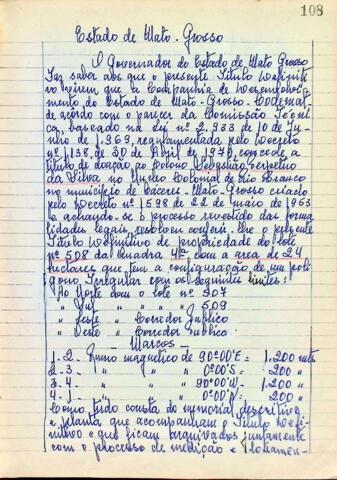 108
Estado de Mato-Grosso
O Governador do Estado de Mato Grosso
Faz saber aos que o presente Titulo Definiti-
vo virem que a Companhia de Desenvolvi-
mento do Estado de Mato-Grosso-Codemat-
de acordo com o parecer da Comissão Técni-
ca, baseado na Lei nº 2.933 de 10 de Ju-
nho de 1.969, regulamentada pelo Decreto
nº 1.138, de 30 de Abril de 1.970, concede a
titulo de doação ao Colono Sebastião
da Silva no Nucleo Colonial de Rio Branco
no municipio de Cáceres-Mato-Grosso criado
pelo Decreto nº 1.598 de 22 de maio de 1953
e achando-se o processo revestido das forma
lidades legais, resolvem conferir-lhe o presente
Titulo Definitivo de propriedade do lote
nº 508 da Quadra 4ª com a area de 24
hectares que tem a configuração de um poli
gono Irregular com os seguintes limites:
Ao Norte com o lote nº 507
" Sul " " " 509
" Leste " Corredor Publico
" Oeste " Corredor Publico.
Marcos
1-2- Rumo magnetico de 90º00'E = 1.200 mts
2-3- " " " 0º00'S = 200 "
3-4- " " " 90º00'W = 1.200 "
4-1- " " " 0º00' = 200 "
Como tudo consta do memorial descritivo
e planta que acompanham o Titulo Defi-
nitivo e que ficam arquivados juntamente
com o processo de medição e lotiamen-